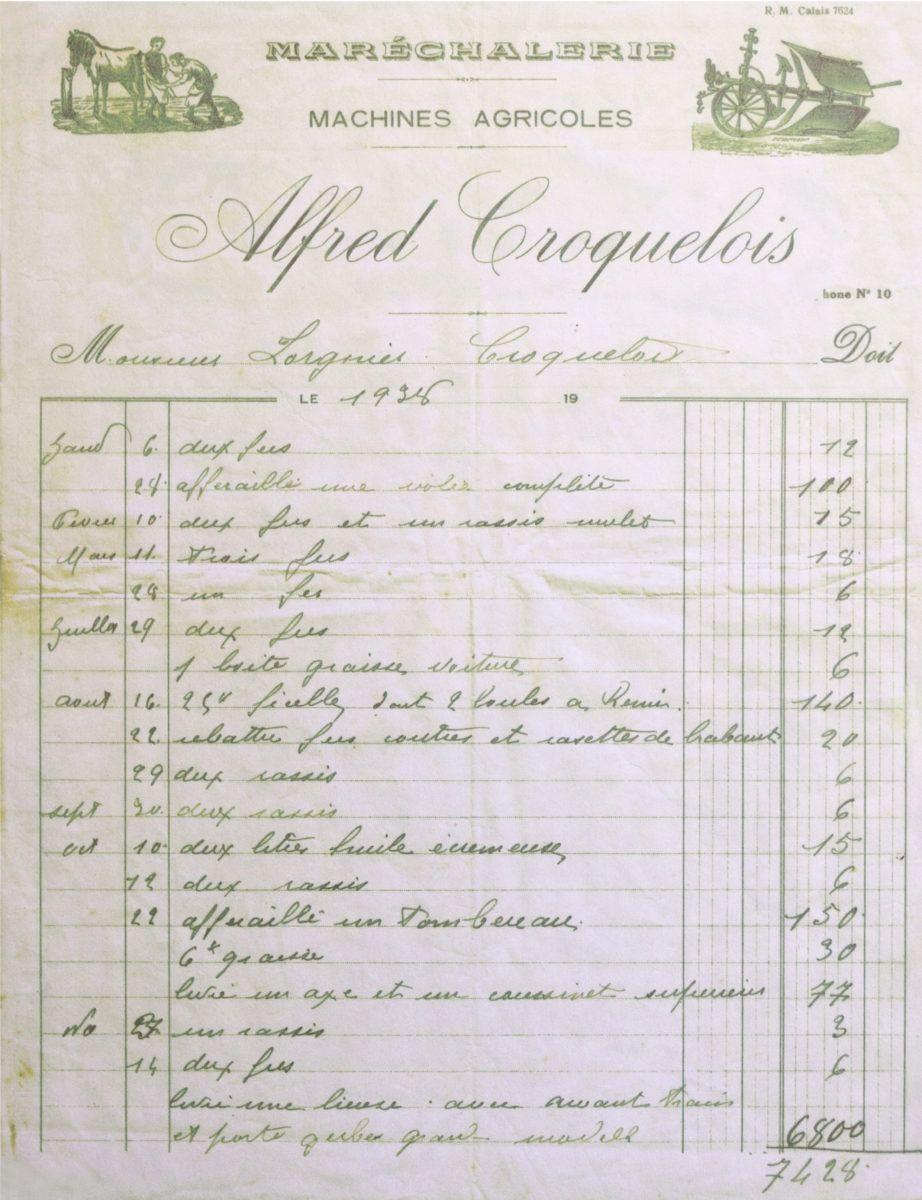 R. M. Calais 7624
MARÉCHALERIE
MACHINES AGRICOLES
Alfred Croquelois
hone Nº 10
Monsieur Lorgnier Croquelois Doit
LE 1938 19
6 deux fers 12
28 afferaillé une complète 100
Fevrier 10 deux fers et un rassis mulet 15
Mars 11 trois fers 18
28 un fer 6
29 deux fers 12
1 boite graisse voiture 6
aout 16 ficelle dont 2 boules a 140
22 rebattre fers coutres et rasettes de brabant 20
29 deux rassis 6
sept 30 deux rassis 6
oct 10 deux litres huile écremeuse 15
12 deux rassis 6
22 afferaillé un Tombereau 150
6 k graisse 30
livré un axe et un coussinet superieur 77
No un rassis 3
14 deux fers 6
livré une lieuse avec avant train
et porte gerbes grand modele 6800
7428